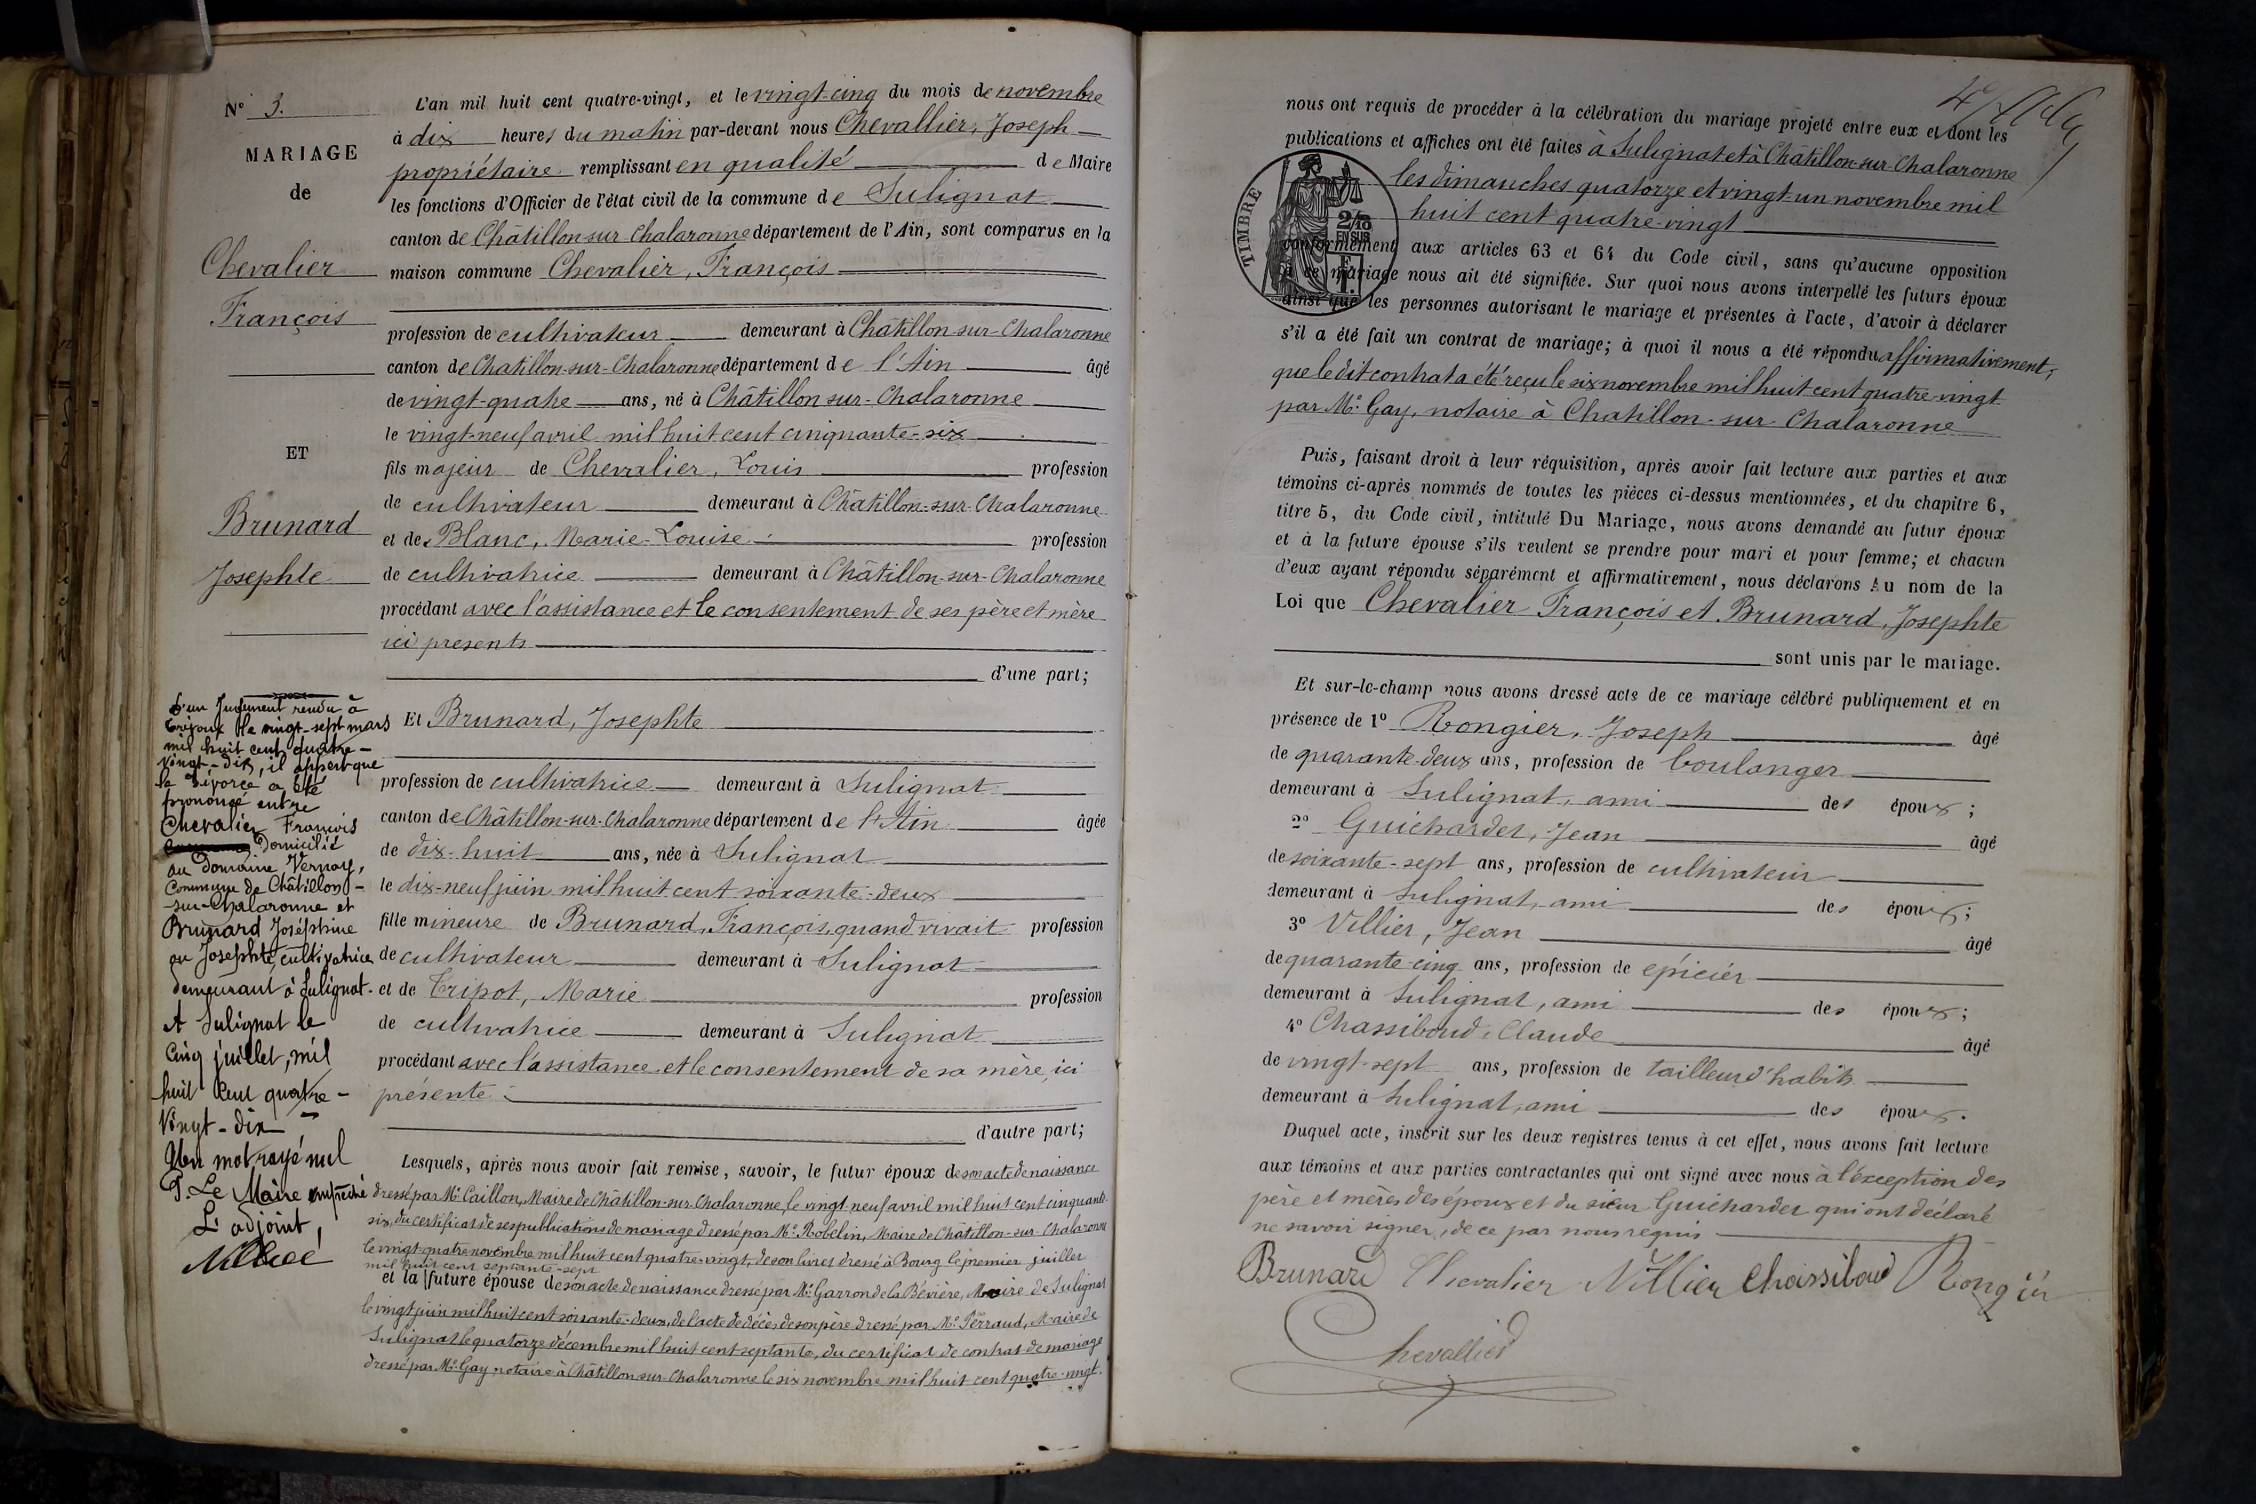 N° 3.
MARIAGE
de
Chevalier
François
ET
Brunard
Josephte
D'un Jugement rendu à
Trévoux le vingt-sept mars
mil huit cent quatre-
vingt-dix, il appert que
le divorce a été
prononcé entre
Chevalier François
Domicilié
au Domaine Vernay,
Commune de Châtillon-
sur-Chalaronne et
Brunard Joséphine
ou Josephte, cultivatrice
demeurant à Sulignat.
A Sulignat le
cinq juillet, mil
huit cent quatre-
vingt-dix
Un mot rayé nul
P. Le Maire empêché
L'adjoint,
Villier
L'an mil huit cent quatre-vingt, et le vingt-cinq du mois de novembre
à dix heures du matin par-devant nous Chevallier, Joseph
propriétaire remplissant en qualité de Maire
les fonctions d'Officier de l'état civil de la commune de Sulignat
canton de Châtillon sur Chalaronne département de l'Ain, sont comparus en la
maison commune Chevalier, François
profession de cultivateur demeurant à Châtillon-sur-Chalaronne
canton de Chatillon-sur-Chalaronne département de l'Ain âgé
de vingt-quatre ans, né à Châtillon sur-Chalaronne
le vingt-neuf avril mil huit cent cinquante-six
fils majeur de Chevalier, Louis profession
de cultivateur demeurant à Châtillon-sur-Chalaronne
et de Blanc, Marie-Louise profession
de cultivatrice demeurant à Châtillon-sur-Chalaronne
procédant avec l'assistance et le consentement de ses père et mère
ici presents
d'une part;
Et Brunard, Josephte
profession de cultivatrice demeurant à Sulignat
canton de Châtillon-sur-Chalaronne département de l'Ain âgée
de dix-huit ans, née à Sulignat
le dix-neuf juin mil huit cent soixante-deux
fille mineure de Brunard, François, quand vivait profession
de cultivateur demeurant à Sulignat
et de Tripot, Marie profession
de cultivatrice demeurant à Sulignat
procédant avec l'assistance et le consentement de sa mère, ici
présente
d'autre part;
Lesquels, après nous avoir fait remise, savoir, le futur époux de son acte de naissance
dressé par Mr Caillon, Maire de Châtillon-sur-Chalaronne, le vingt-neuf avril mil huit cent cinquante-
six, du certificat de ses publications de mariage dressé par Mr Robelin, Maire de Châtillon-sur-Chalaronne
le vingt-quatre novembre mil huit cent quatre-vingt, de son livret dressé à Bourg le premier juillet
mil huit cent septante-sept
et la future épouse de son acte de naissance dressé par Mr Garron de la Bévière, Maire de Sulignat
le vingt juin mil huit cent soixante-deux, de l'acte de décès de son père dressé par Mr Perraud, Maire de
Sulignat le quatorze décembre mil huit cent septante, du certificat de contrat de mariage
dressé par Me Gay notaire à Châtillon sur Chalaronne le six novembre mil huit cent quatre-vingt.
nous ont requis de procéder à la célébration du mariage projeté entre eux et dont les
publications et affiches ont été faites à Sulignat et à Châtillon-sur-Chalaronne
les dimanches quatorze et vingt-un novembre mil
huit cent quatre-vingt
TIMBRE
2/10
EN SUS
conformément aux articles 63 et 64 du Code civil, sans qu'aucune opposition
à ce mariage nous ait été signifiée. Sur quoi nous avons interpellé les futurs époux
ainsi que les personnes autorisant le mariage et présentes à l'acte, d'avoir à déclarer
s'il a été fait un contrat de mariage; à quoi il nous a été répondu affirmativement,
que le dit contrat a été reçu le six novembre mil huit cent quatre-vingt
par Me Gay, notaire à Chatillon-sur-Chalaronne
Puis, faisant droit à leur réquisition, après avoir fait lecture aux parties et aux
témoins ci-après nommés de toutes les pièces ci-dessus mentionnées, et du chapitre 6,
titre 5, du Code civil, intitulé Du Mariage, nous avons demandé au futur époux
et à la future épouse s'ils veulent se prendre pour mari et pour femme; et chacun
d'eux ayant répondu séparément et affirmativement, nous déclarons Au nom de la
Loi que Chevalier François et Brunard, Josephte
sont unis par le mariage.
Et sur-le-champ nous avons dressé acte de ce mariage célébré publiquement et en
présence de 1° Rongier, Joseph âgé
de quarante-deux ans, profession de boulanger
demeurant à Sulignat, ami des époux;
2° Guichardet, Jean âgé
de soixante-sept ans, profession de cultivateur
demeurant à Sulignat, ami des époux;
3° Villier, Jean âgé
de quarante-cinq ans, profession de épicier
demeurant à Sulignat, ami des époux;
4° Chassiboud, Claude âgé
de vingt-sept ans, profession de tailleur d'habits
demeurant à Sulignat, ami des époux.
Duquel acte, inscrit sur les deux registres tenus à cet effet, nous avons fait lecture
aux témoins et aux parties contractantes qui ont signé avec nous à l'exception des
père et mères des époux et du sieur Guichardet qui ont déclaré
ne savoir signer, de ce par nous requis
Brunard Chevalier Villier Chassiboud Rongier
Chevallier